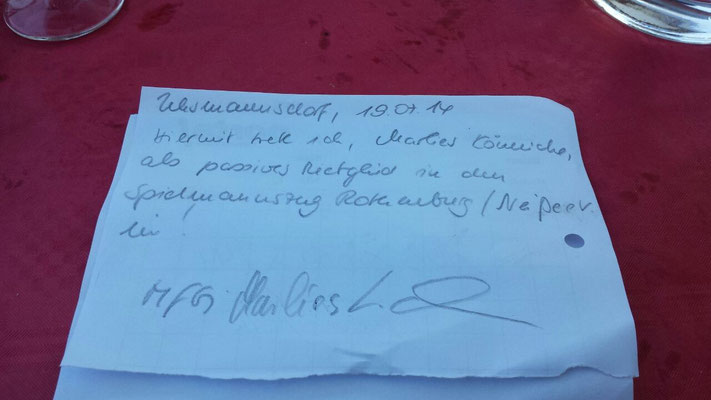 Uhsmannsdorf, 19.07.14
Hiermit trete ich, Marlies
als passives Mitglied in den
Spielmannszug Rothenburg / Neiße e.V.
ein!
MfG Marlies